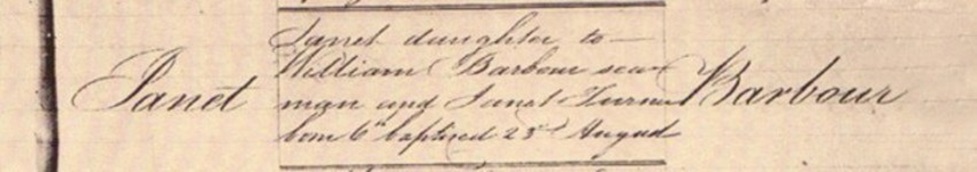 Janet
Janet daughter to
William Barbour sea-
man and Janet Turner
born 6th baptized 23d August
Barbour